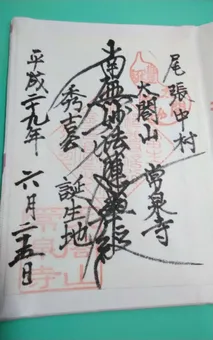 尾張中村
太閤山 常泉寺
南無妙法蓮華経
秀吉公 誕生地
平成廿九年
六月廿五日